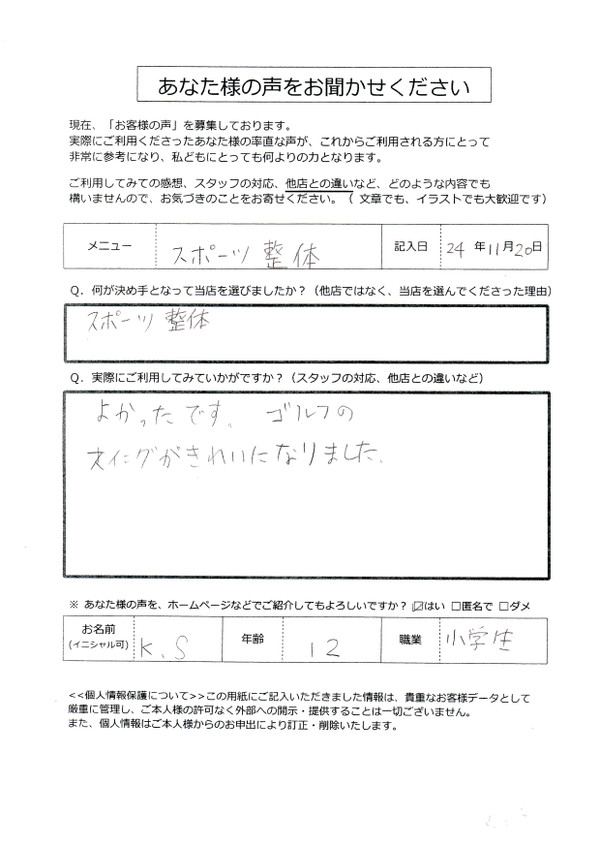 あなた様の声をお聞かせください
現在、「お客様の声」を募集しております。
実際にご利用くださったあなた様の率直な声が、これからご利用される方にとって
非常に参考になり、私どもにとっても何よりの力となります。
ご利用してみての感想、スタッフの対応、他店との違いなど、どのような内容でも
構いませんので、お気づきのことをお寄せください。（ 文章でも、イラストでも大歓迎です）
メニュー スポーツ整体 記入日 24 年 11 月 20 日
Q．何が決め手となって当店を選びましたか？（他店ではなく、当店を選んでくださった理由）
スポーツ整体
Q．実際にご利用してみていかがですか？（スタッフの対応、他店との違いなど）
よかったです。 ゴルフの
スイングがきれいになりました。
※ あなた様の声を、ホームページなどでご紹介してもよろしいですか？ ☑はい □匿名で □ダメ
お名前 (イニシャル可) K.S 年齢 12 職業 小学生
<<個人情報保護について>>この用紙にご記入いただきました情報は、貴重なお客様データとして
厳重に管理し、ご本人様の許可なく外部への開示・提供することは一切ございません。
また、個人情報はご本人様からのお申出により訂正・削除いたします。